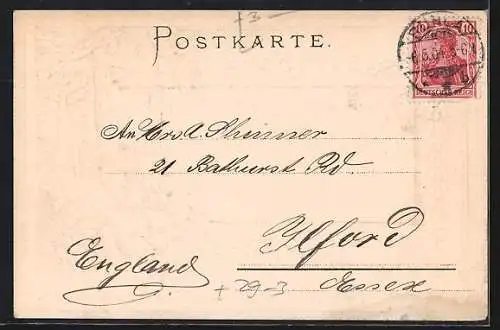 +3-
POSTKARTE.
10 10
DEUTSCHES REICH
An Mrs. A. Skinner
21 Bathurst Rd.
Ilford
England
Essex
+29-3